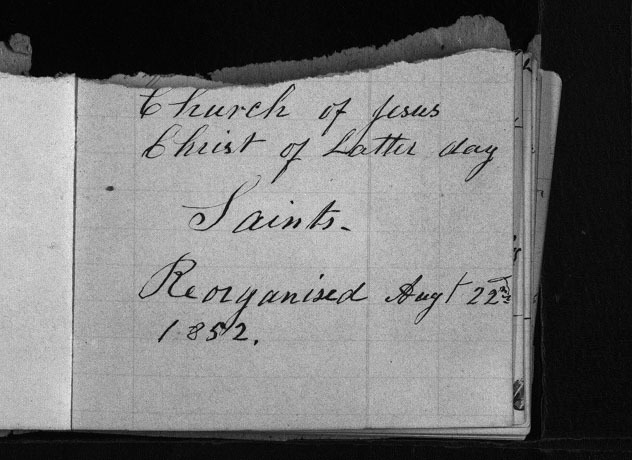 Church of Jesus
Christ of Latter day
Saints.
Reorganised Augt 22nd
1852.